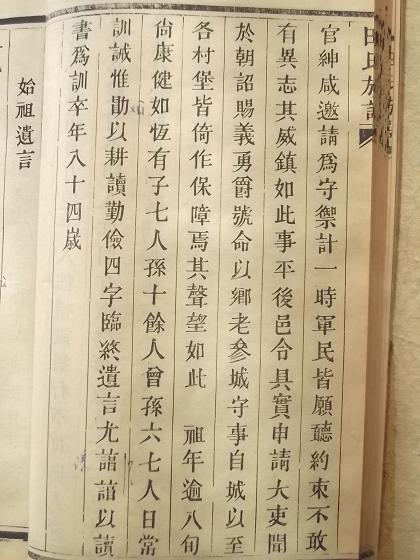 田氏族譜
官紳咸邀請爲守禦計一時軍民皆願聽約束不敢
有異志其威鎭如此事平後邑令具實申請大吏聞
於朝詔賜義勇爵號命以鄉老參城守事自城以至
各村堡皆倚作保障焉其聲望如此 祖年逾八旬
尙康健如恆有子七人孫十餘人曾孫六七人日常
訓誡惟勖以耕讀勤儉四字臨終遺言尤諳諳以讀
書爲訓卒年八十四歲
始祖遺言